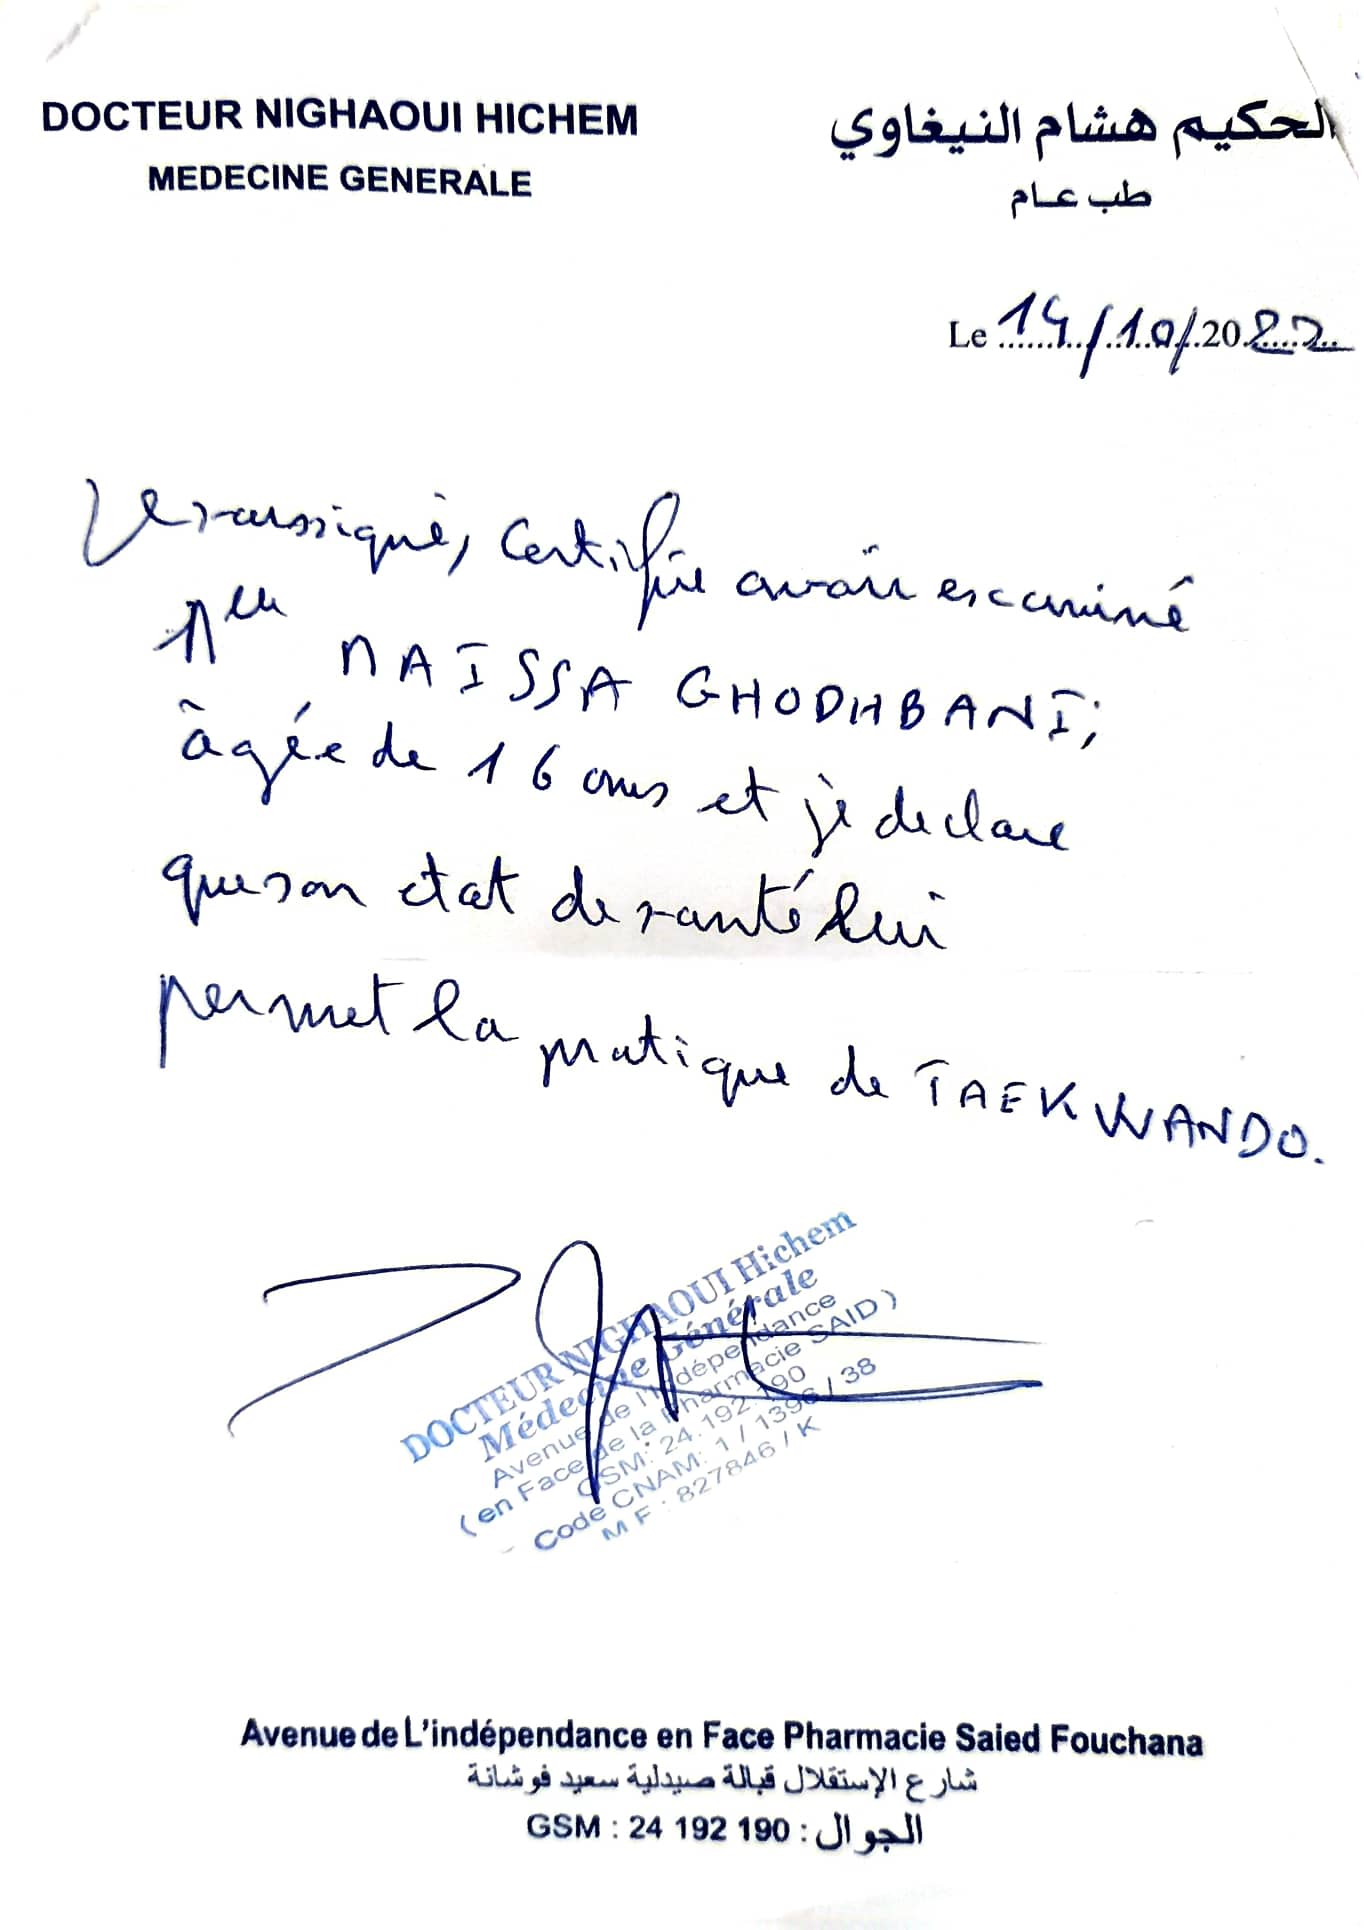 DOCTEUR NIGHAOUI HICHEM
MEDECINE GENERALE
الحكيم هشام النيغاوي
طب عام
Le 14/10/2022
Je soussigné, certifie avoir examiné
Mlle NAISSA GHODHBANI;
âgée de 16 ans et je declare
que son etat de santé lui
permet la pratique de TAEKWANDO.
DOCTEUR NIGHAOUI Hichem
Médecine Générale
Avenue de l'Indépendance
( en Face de la Pharmacie SAID )
GSM: 24.192.190
Code CNAM: 1 / 1396 / 38
M F : 827846 / K
Avenue de L'indépendance en Face Pharmacie Saied Fouchana
شارع الإستقلال قبالة صيدلية سعيد فوشانة
GSM : 24 192 190 : الجوال